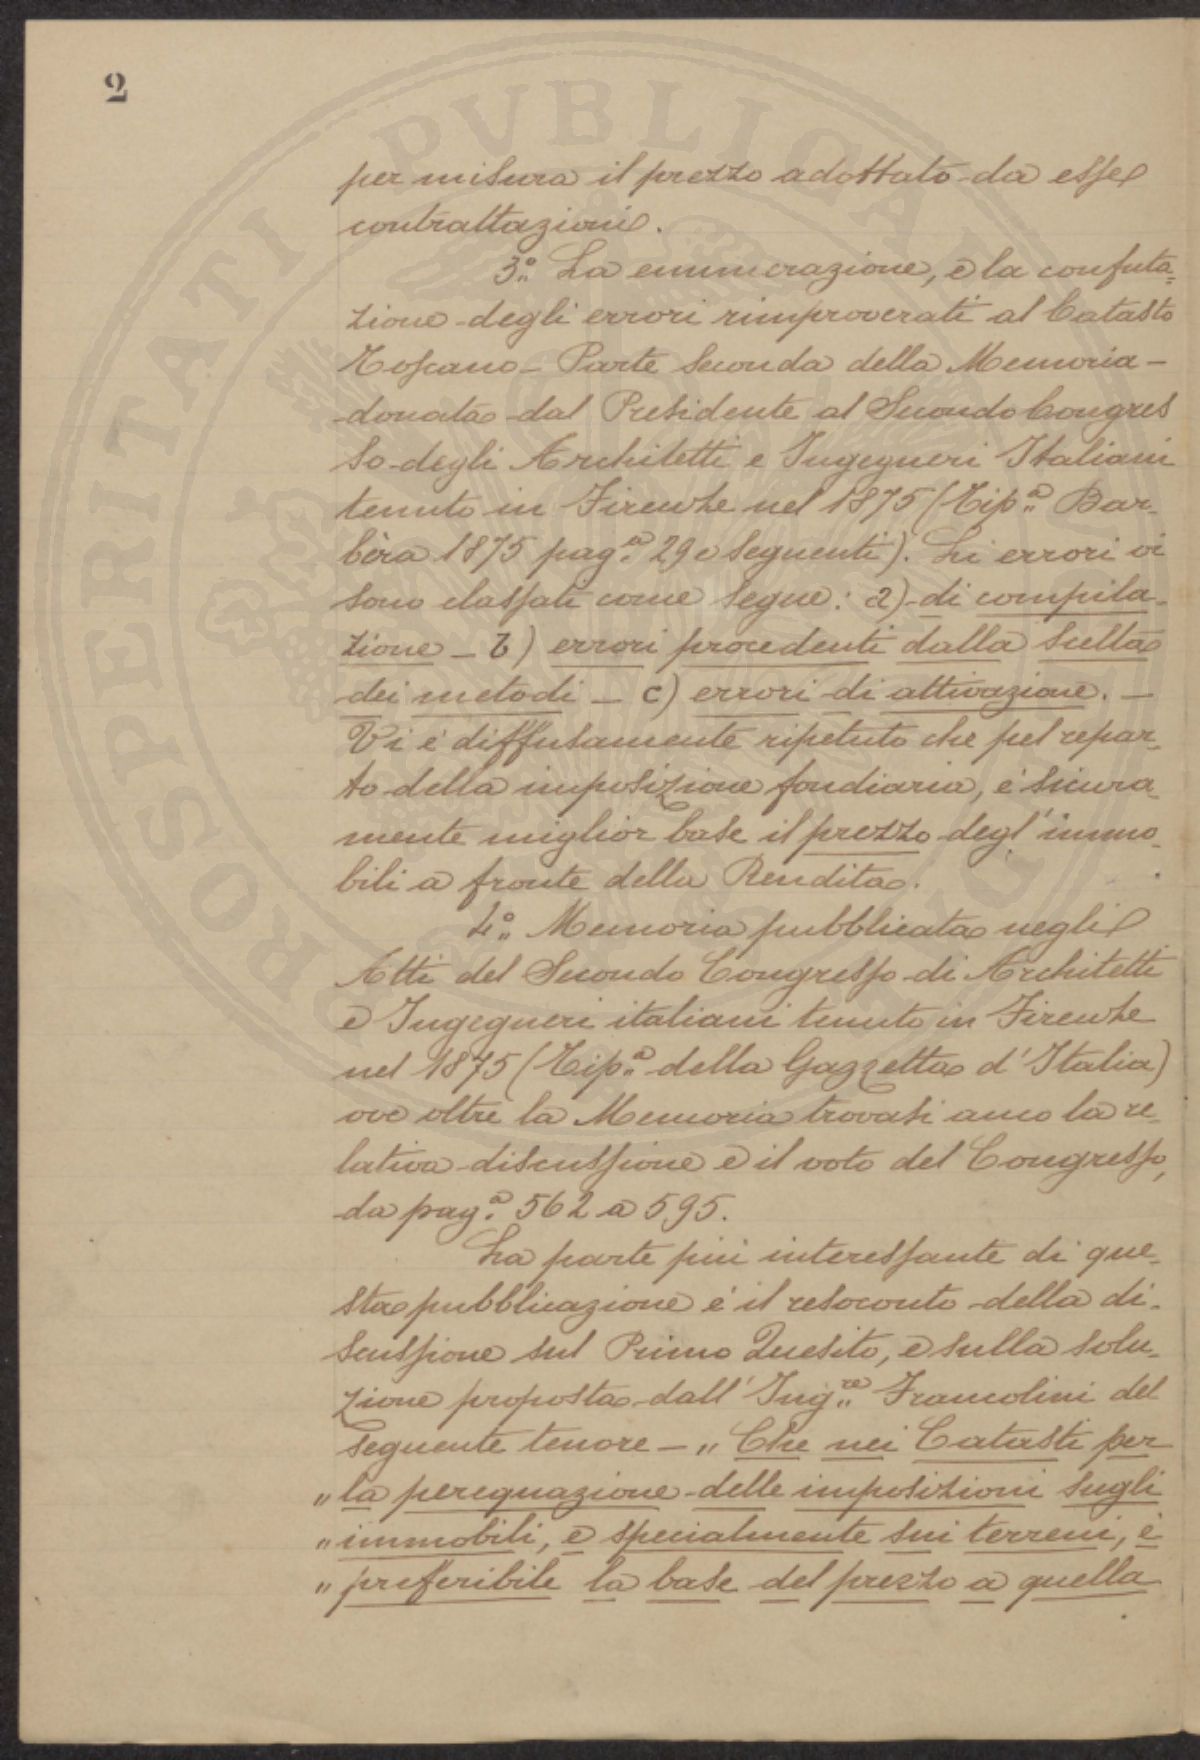 2
per misura il prezzo adottato da esse
contrattazioni.
3.° La enumerazione, e la confuta=
zione degli errori rimproverati al Catasto
Toscano – Parte Seconda della Memoria –
donata dal Presidente al Secondo Congres
so degli Architetti e Ingegneri Italiani
tenuto in Firenze nel 1875 (Tip.ª Bar-
bèra 1875 pag.ª 29 e seguenti). Li errori vi
sono classati come segue: a) di compila-
zione – b) errori procedenti dalla scelta
dei metodi – c) errori di attivazione. –
Vi è diffusamente ripetuto che pel repar-
to della imposizione fondiaria, è sicura-
mente miglior base il prezzo degl'immo-
bili a fronte della Rendita.
4.° Memoria pubblicata negli
Atti del Secondo Congresso di Architetti
e Ingegneri italiani tenuto in Firenze
nel 1875 (Tip.ª della Gazzetta d'Italia)
ove oltre la Memoria trovasi anco la re-
lativa discussione e il voto del Congresso,
da pag.ª 562 a 595.
La parte più interessante di que-
sta pubblicazione è il resoconto della di-
scussione sul Primo Quesito, e sulla solu-
zione proposta dall'Ing.re Francolini del
seguente tenore – „ Che nei Catasti per
„ la perequazione delle imposizioni sugli
„ immobili, e specialmente sui terreni, è
„ preferibile la base del prezzo a quella
PROSPERITATI PVBLICAE